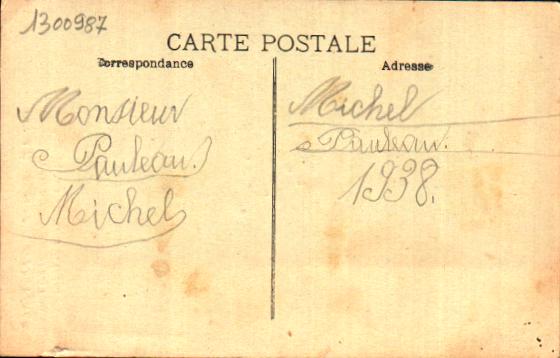 1300987
CARTE POSTALE
Correspondance
Adresse
Monsieur
Pauleau.
Michel
Michel
Pauleau.
1938.